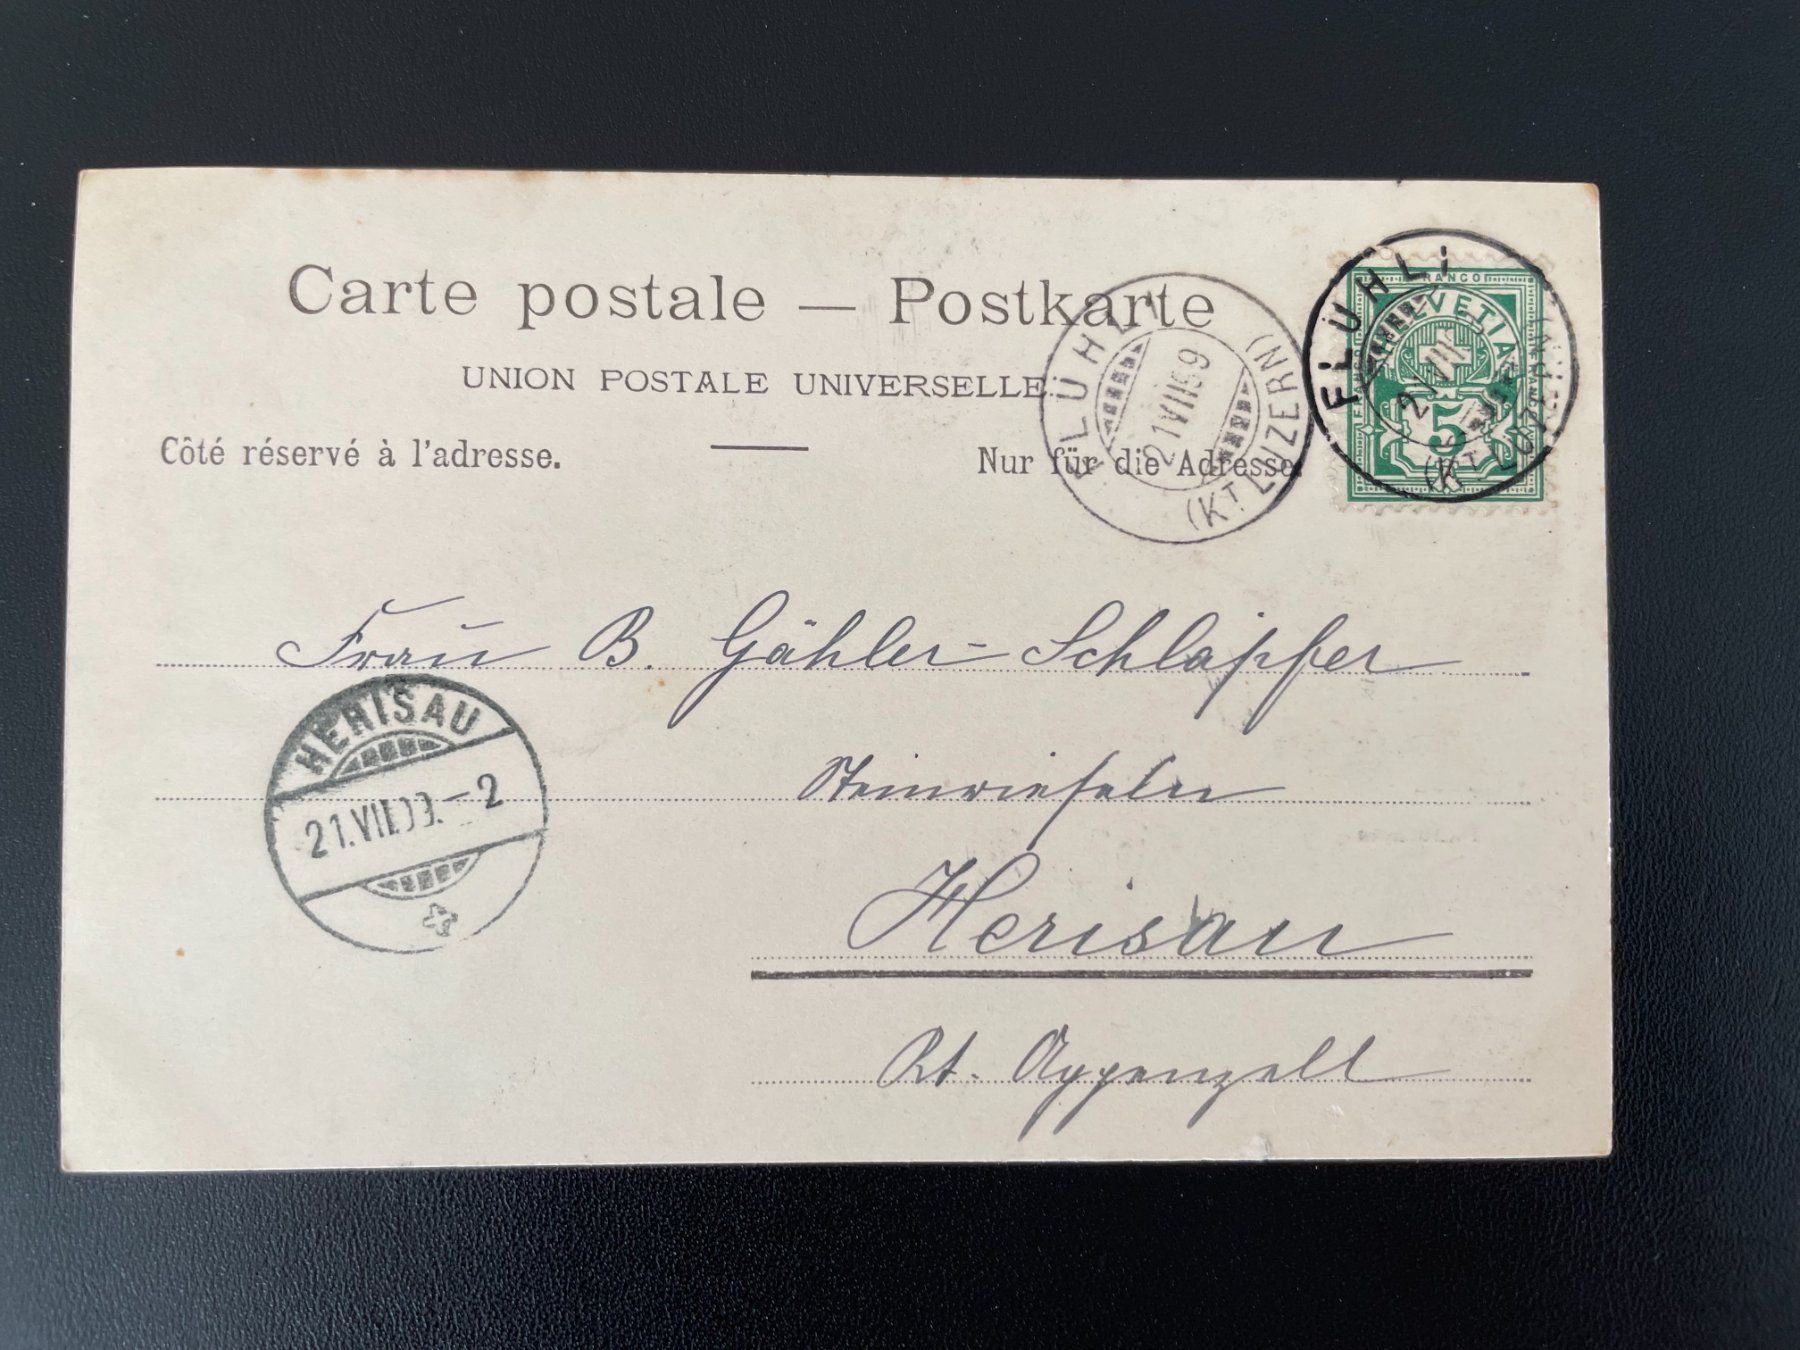 Carte postale — Postkarte
UNION POSTALE UNIVERSELLE
Côté réservé à l'adresse.
Nur für die Adresse.
FLÜHLI
21 VII 99
(KT LUZERN)
FLÜHLI
VII
(KT LUZERN)
FRANCO
HELVETIA
5
Frau B. Gähler-Schläpfer
Herisau
Kt. Appenzell
HERISAU
21.VII.99.-2